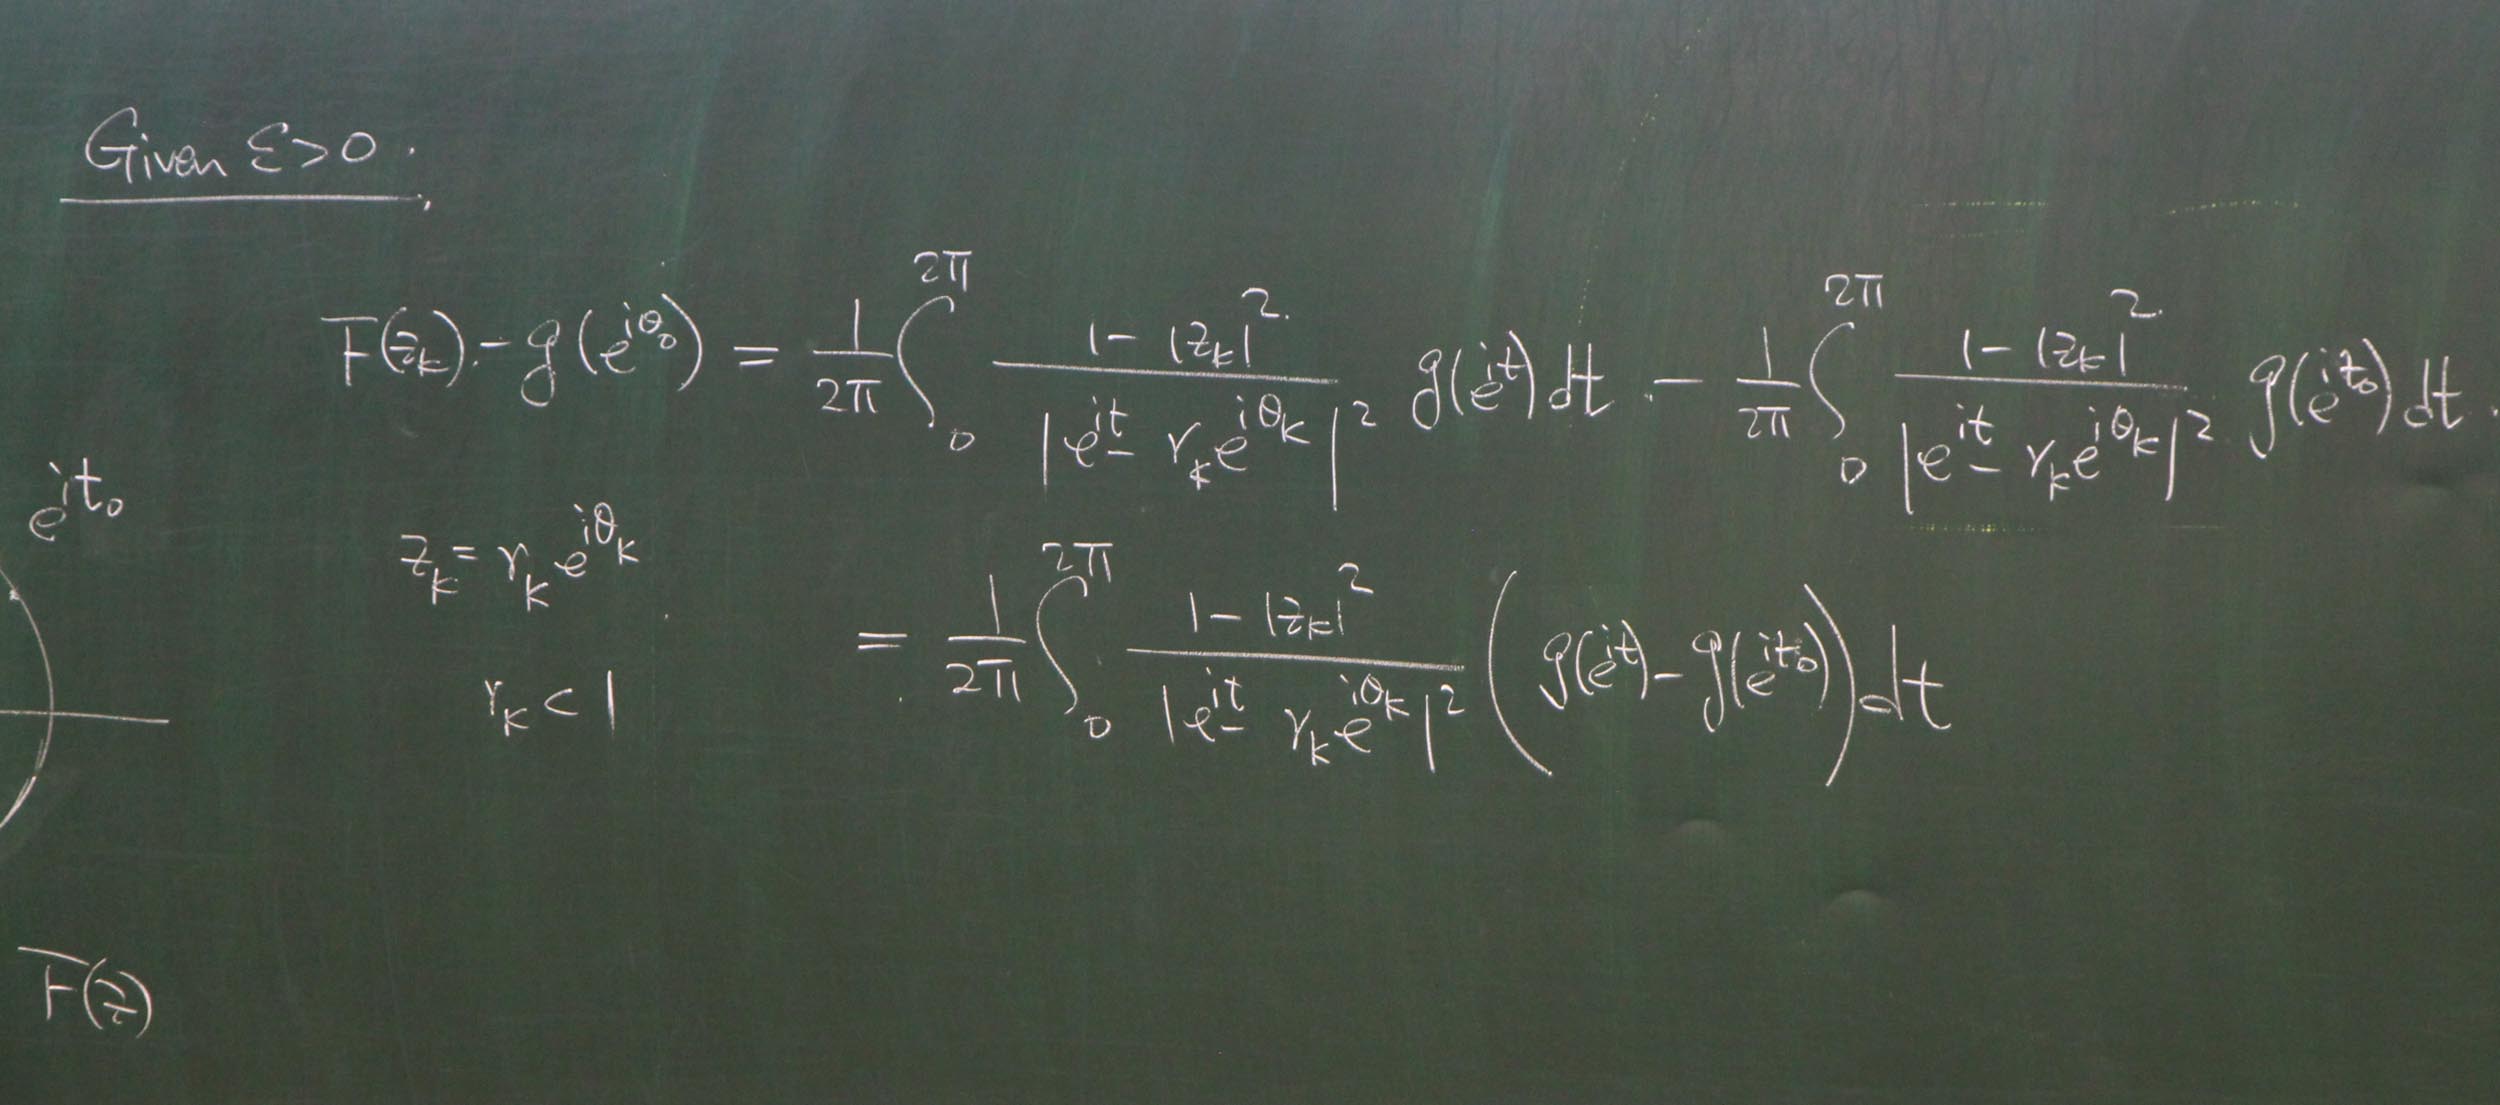 Given ε>0.
F(z_k) - g(e^{iθ_0}) = \frac{1}{2π} \int_0^{2π} \frac{1-|z_k|^2}{|e^{it} - r_k e^{iθ_k}|^2} g(e^{it}) dt - \frac{1}{2π} \int_0^{2π} \frac{1-|z_k|^2}{|e^{it} - r_k e^{iθ_k}|^2} g(e^{it_0}) dt.
e^{it_0}
z_k = r_k e^{iθ_k}
= \frac{1}{2π} \int_0^{2π} \frac{1-|z_k|^2}{|e^{it} - r_k e^{iθ_k}|^2} (g(e^{it}) - g(e^{it_0})) dt
r_k < 1
F(z)